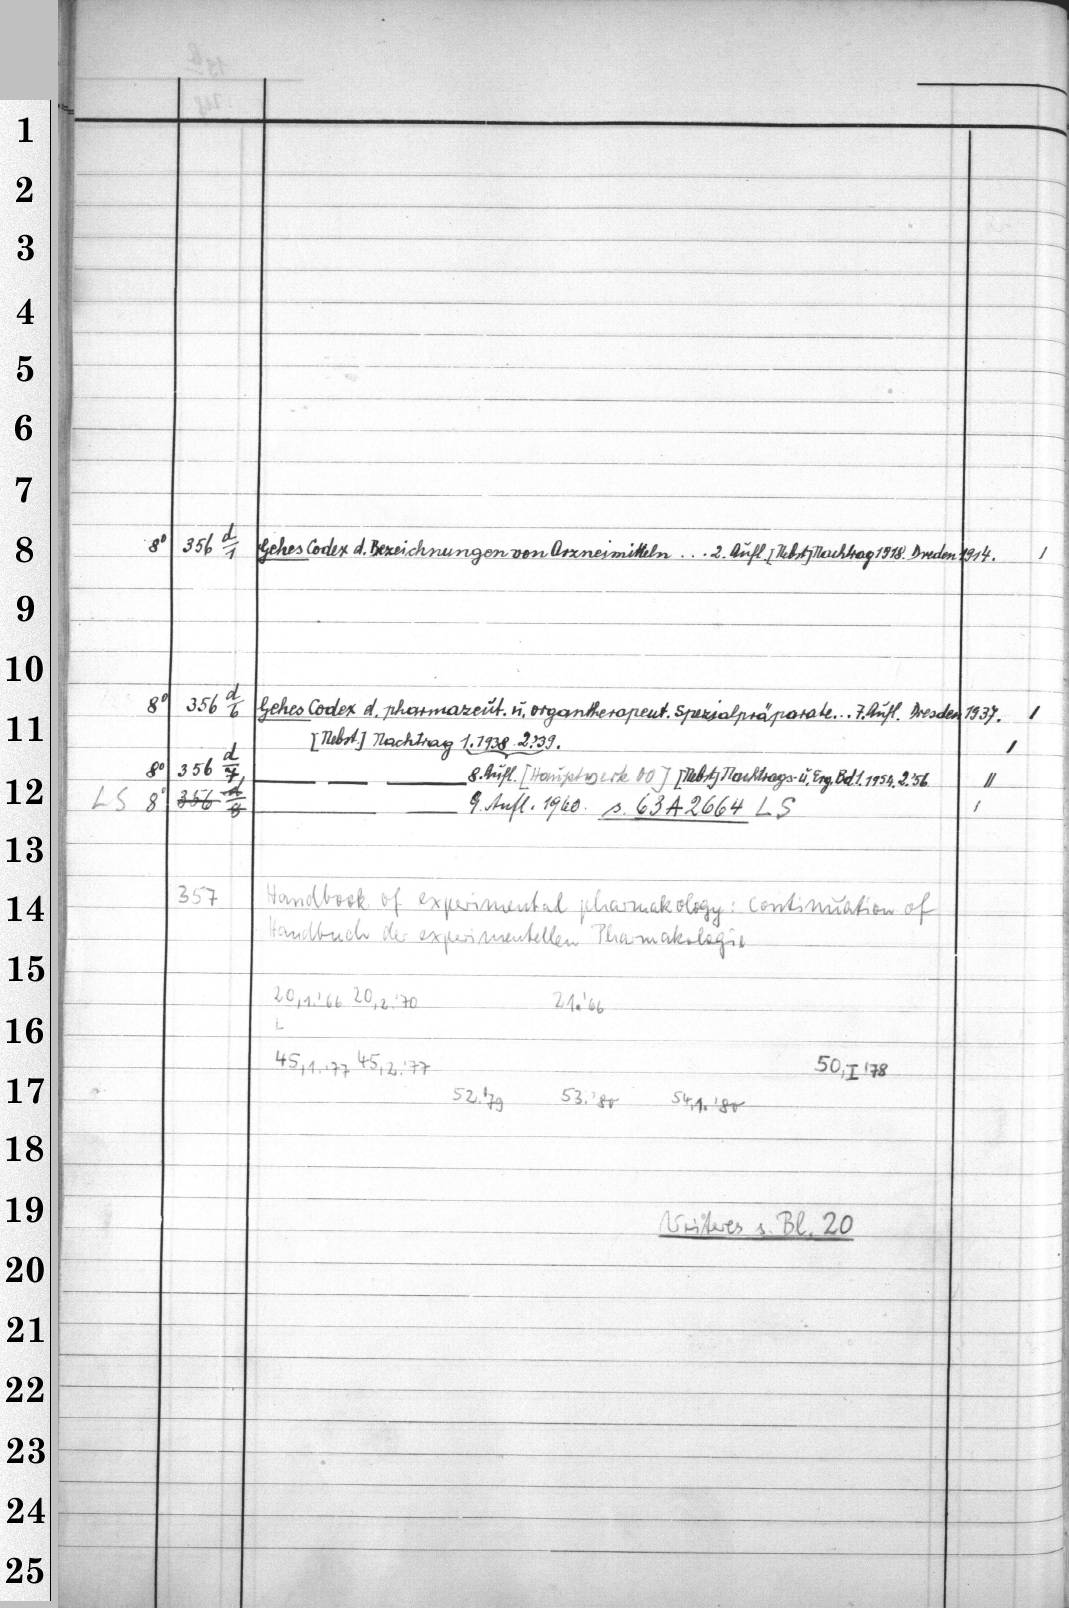 1
2
3
4
5
6
7
8 8° 356 d/1 Gehes Codex d. Bezeichnungen von Arzneimitteln ... 2. Aufl. [Nebst] Nachtrag 1918. Dresden 1914. 1
9
10
8° 356 d/6 Gehes Codex d. pharmazeut. u. organtherapeut. Spezialpräparate... 7. Aufl. Dresden 1937. 1
11 [Nebst] Nachtrag 1.1938 2.39. 1
8° 356 d/7, — — — 8. Aufl. [Hauptwerk 00] [Nebst] Nachtrags- u. Erg. Bd 1. 1954. 2.'56 11
12 LS 8° 356 d/8 — — 9. Aufl. 1960. s. 63 A 2664 LS 1
13
14 357 Handbook of experimental pharmakology: continuation of
Handbuch der experimentellen Pharmakologie
15
20,1.'66 20,2.'70 21.'66
16 L
45,1.'77 45,2.'77 50,I '78
17 52.'79 53.'80 54,1.'80
18
19 Weiteres s. Bl. 20
20
21
22
23
24
25